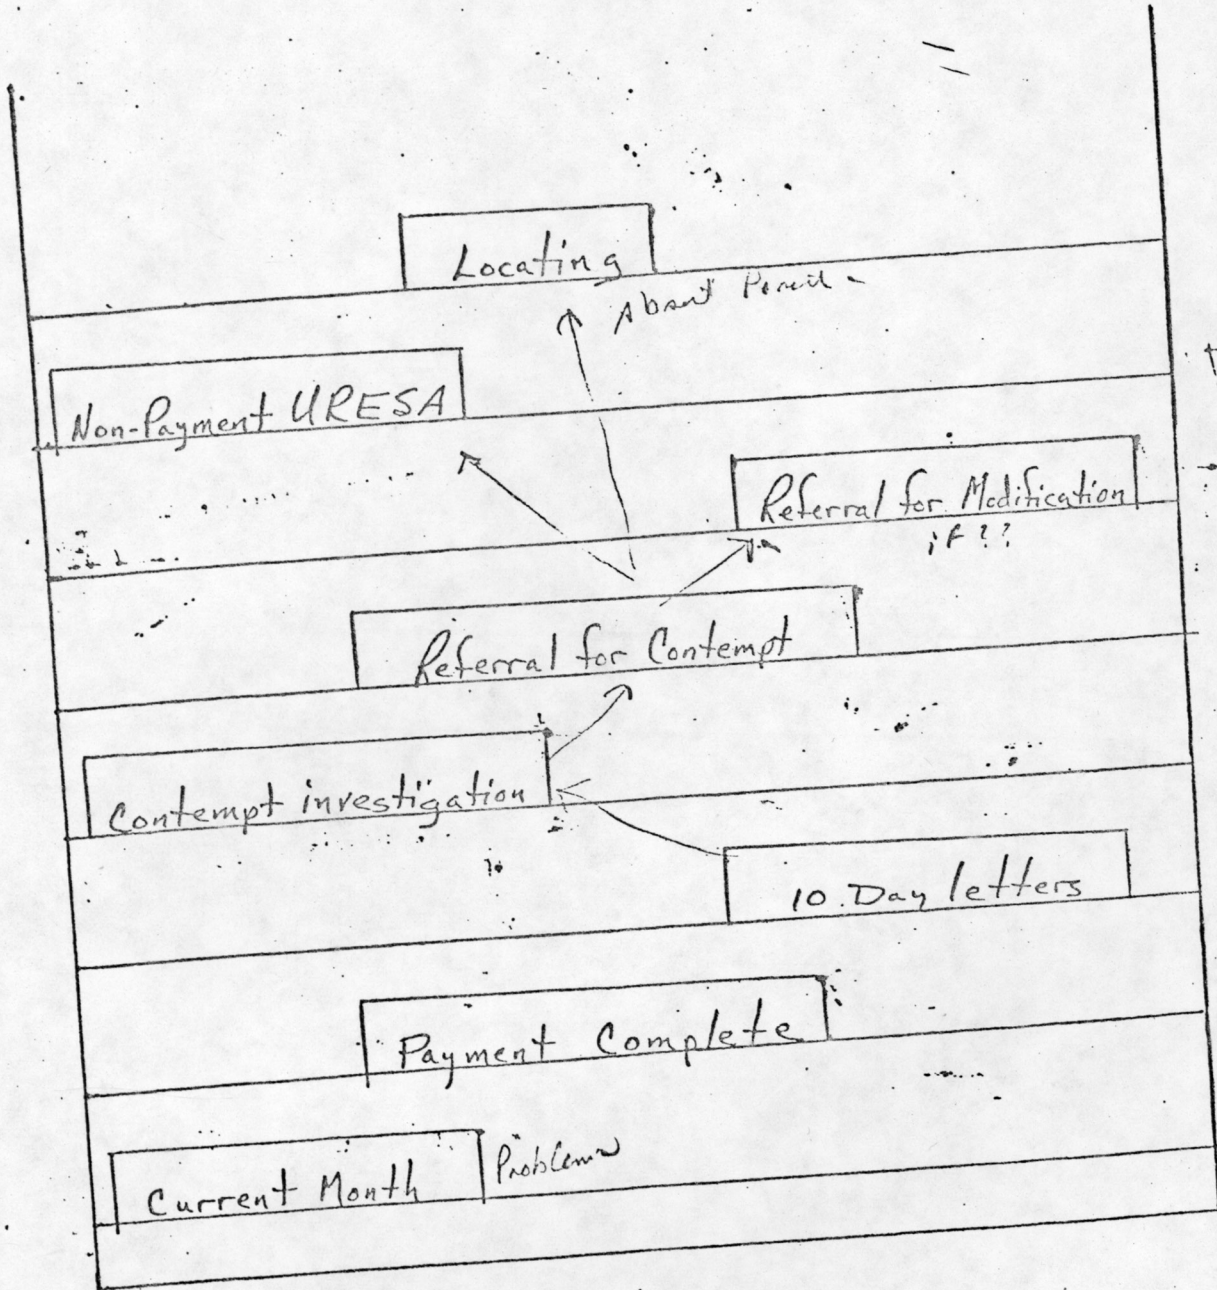 Locating
Absent Parent
Non-Payment URESA
Referral for Modification
if ??
Referral for Contempt
Contempt investigation
10 Day letters
Payment Complete
Current Month
Problems